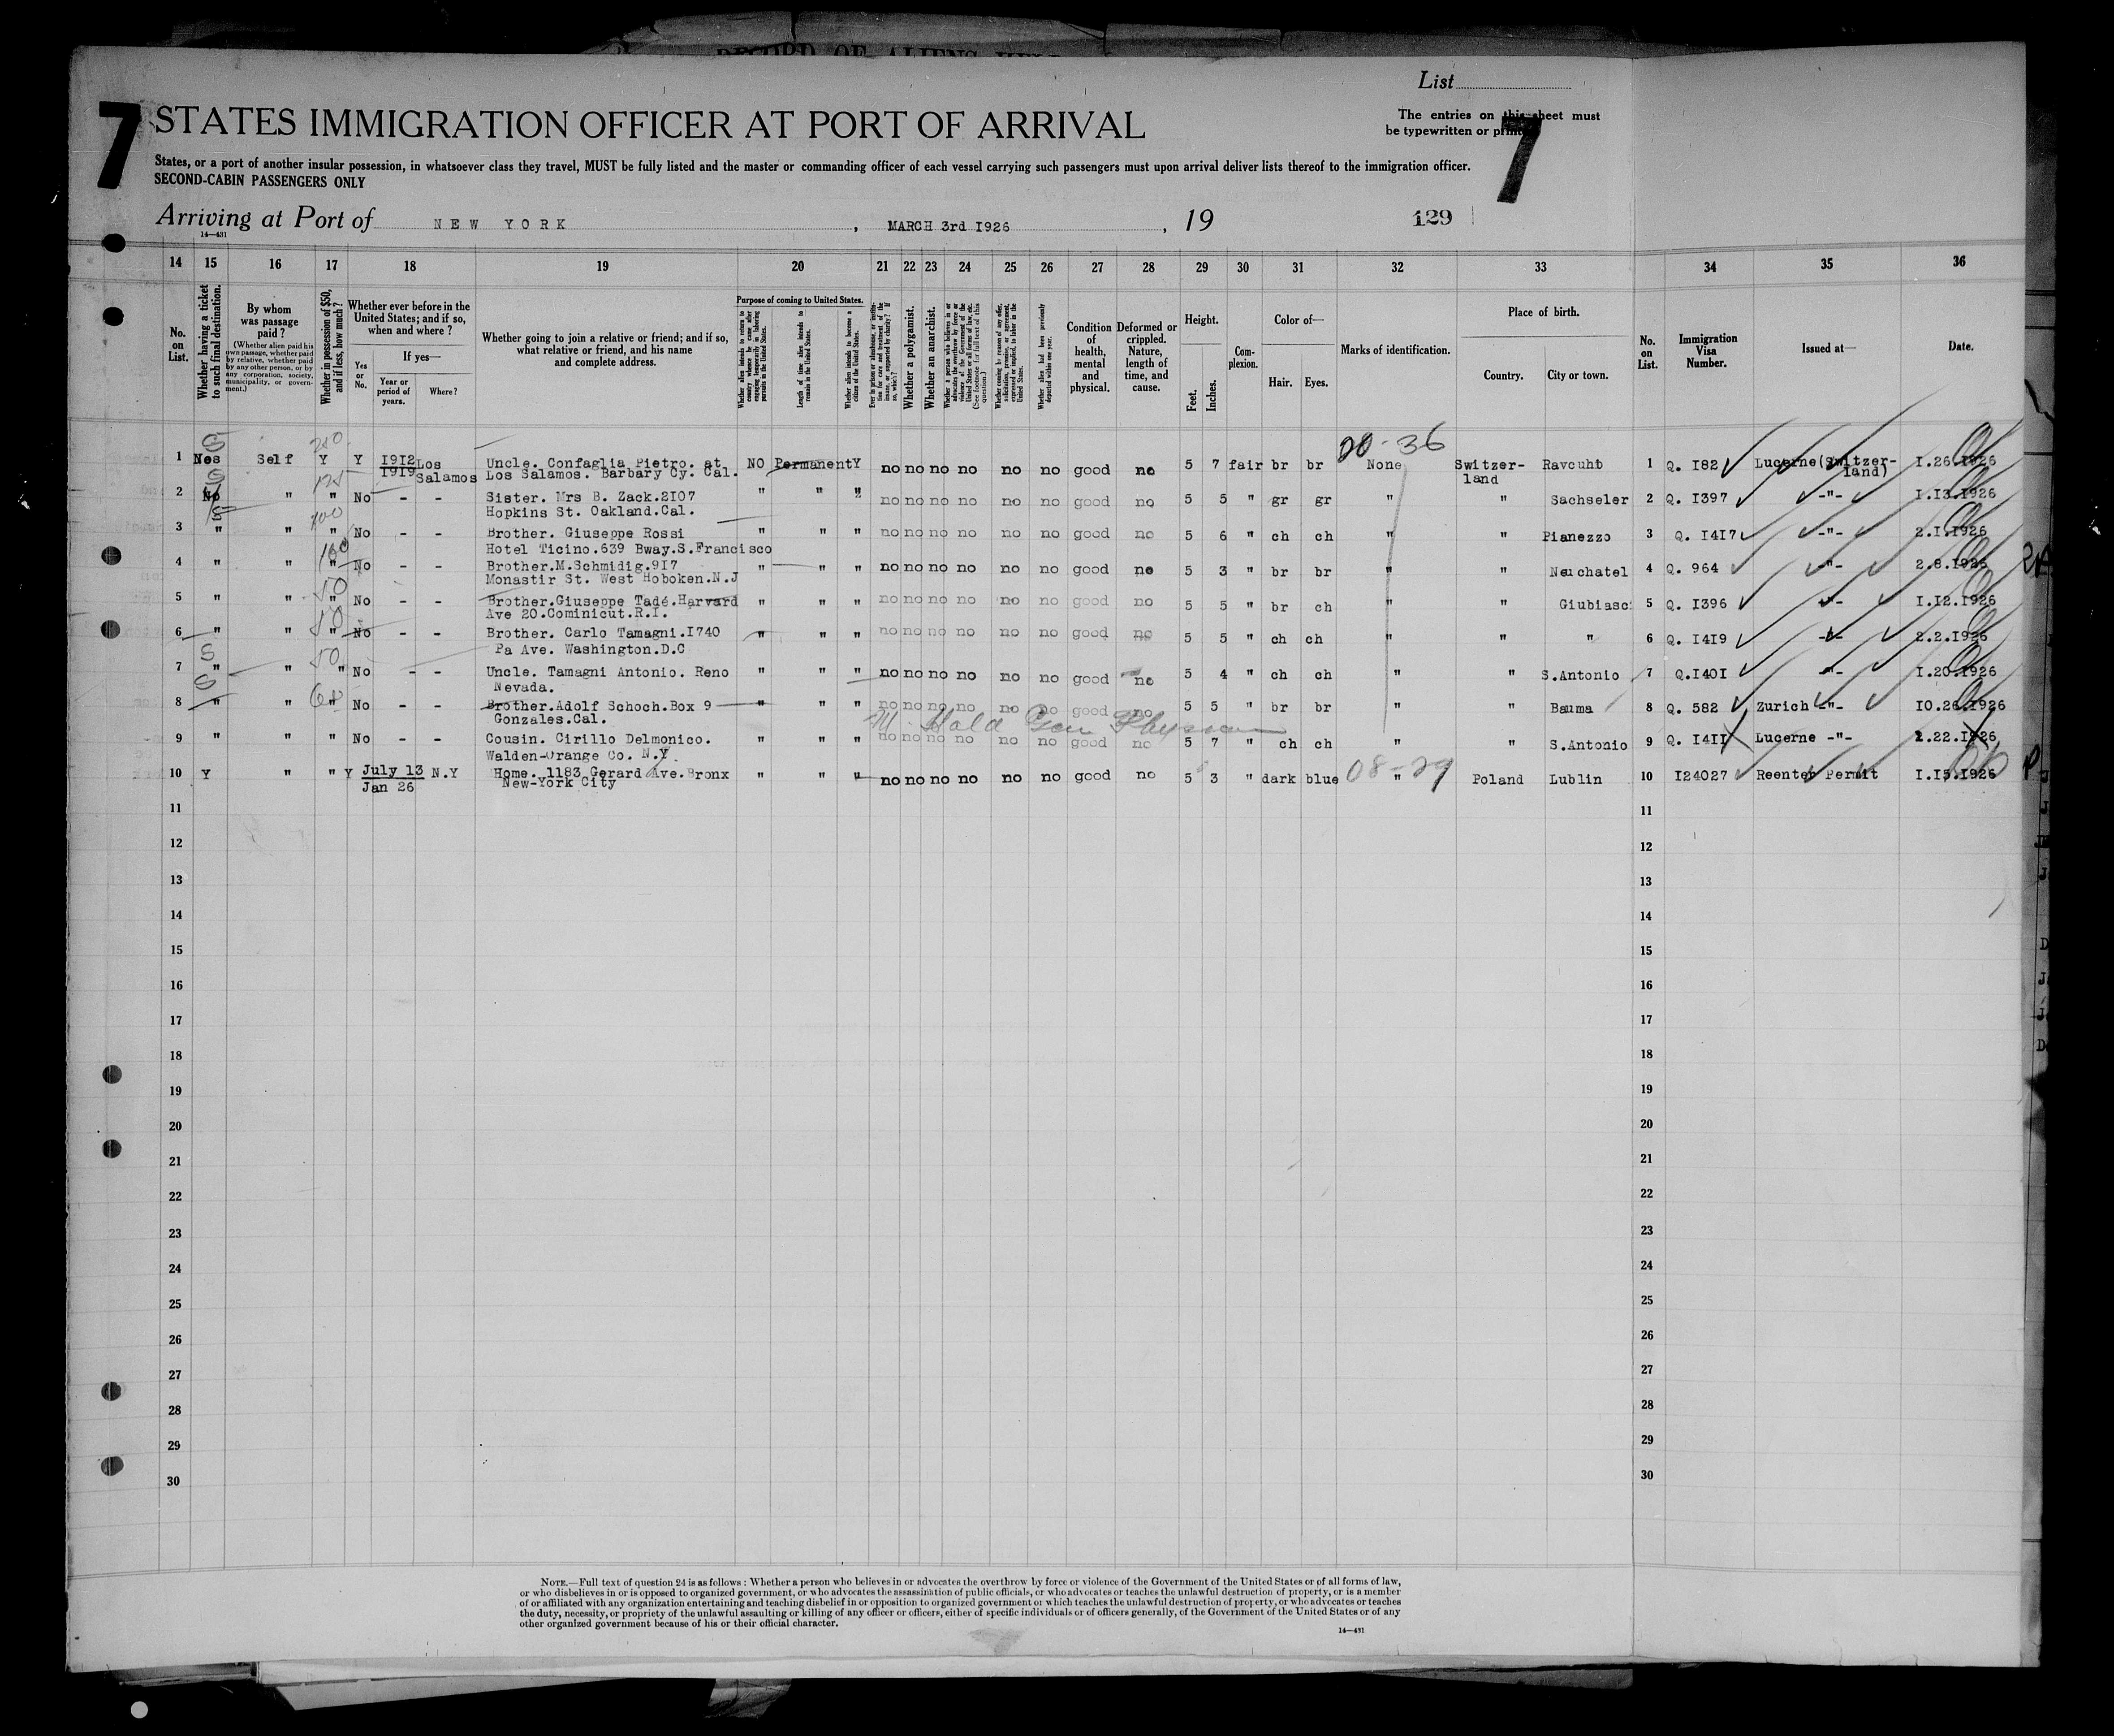 RECORD OF ALIENS HELD
List
7 STATES IMMIGRATION OFFICER AT PORT OF ARRIVAL
The entries on this sheet must
be typewritten or printed.
7
States, or a port of another insular possession, in whatsoever class they travel, MUST be fully listed and the master or commanding officer of each vessel carrying such passengers must upon arrival deliver lists thereof to the immigration officer.
SECOND-CABIN PASSENGERS ONLY
Arriving at Port of NEW YORK, MARCH 3rd 1926, 19 129
14—431
14 15 16 17 18 19 20 21 22 23 24 25 26 27 28 29 30 31 32 33 34 35 36
No. on List.
Whether having a ticket to such final destination.
By whom was passage paid?
(Whether alien paid his own passage, whether paid by relative, whether paid by any other person, or by any corporation, society, municipality, or government.)
Whether in possession of $50, and if less, how much?
Whether ever before in the United States; and if so, when and where?
Yes or No.
If yes—
Year or period of years.
Where?
Whether going to join a relative or friend; and if so, what relative or friend, and his name and complete address.
Purpose of coming to United States.
Whether alien intends to return to country whence he came after engaging temporarily in laboring pursuits in the United States.
Length of time alien intends to remain in the United States.
Whether alien intends to become a citizen of the United States.
Ever in prison or almshouse, or institution for care and treatment of the insane, or supported by charity? If so, which?
Whether a polygamist.
Whether an anarchist.
Whether a person who believes in or advocates the overthrow by force or violence of the Government of the United States or all forms of law, etc. (See footnote for full text of this question.)
Whether coming by reason of any offer, solicitation, promise, or agreement, expressed or implied, to labor in the United States.
Whether alien had been previously deported within one year.
Condition of health, mental and physical.
Deformed or crippled. Nature, length of time, and cause.
Height.
Feet.
Inches.
Complexion.
Color of—
Hair.
Eyes.
Marks of identification.
Place of birth.
Country.
City or town.
No. on List.
Immigration Visa Number.
Issued at—
Date.
S 250 00-36
1 Self Y Y 1912 1919 Los Salamos Uncle. Confaglia Pietro. at NO Permanent Y no no no no no no good no 5 7 fair br br None Switzer- land 1 Q. 182 Lucerne(Switzer- land) 1.26.1926
Los Salamos. Barbary Cy. Cal.
S 125
2 No " " No - - Sister. Mrs B. Zack.2107 " " " no no no no no no good no 5 5 " gr gr " " Sachseler 2 Q. 1397 -"- 1.13.1926
Hopkins St. Oakland.Cal.
S 100
3 " " " No - - Brother. Giuseppe Rossi " " " no no no no no no good no 5 6 " ch ch " " Pianezzo 3 Q. 1417 -"- 2.1.1926
Hotel Ticino.639 Bway.S.Francisco
100
4 " " " No - - Brother.M.Schmidig.917 " " " no no no no no no good no 5 3 " br br " " Neuchatel 4 Q. 964 -"- 2.8.1926
Monastir St. West Hoboken.N.J
50
5 " " " No - - Brother.Giuseppe Tadé.Harvard " " " no no no no no no good no 5 5 " br ch " " Giubiasc 5 Q. 1396 -"- 1.12.1926
Ave 20.Cominicut.R.I.
50
6 " " " No - - Brother. Carlo Tamagni.1740 " " " no no no no no no good no 5 5 " ch ch " " " 6 Q. 1419 -"- 2.2.1926
Pa Ave. Washington.D.C
S 50
7 " " " No - - Uncle. Tamagni Antonio. Reno " " " no no no no no no good no 5 4 " ch ch " " S.Antonio 7 Q.1401 -"- 1.20.1926
Nevada.
S 60
8 " " " No - - Brother.Adolf Schoch.Box 9 " " " no no no no no no good no 5 5 " br br " " Bauma 8 Q. 582 Zurich -"- 10.26.1926
Gonzales.Cal.
Hold
9 " " " No - - Cousin. Cirillo Delmonico. " " " no no no no no no good no 5 7 " ch ch " " S.Antonio 9 Q. 1411 Lucerne -"- 1.22.1926
Walden-Orange Co. N.Y.
08-29
10 Y " " Y July 13 Jan 26 N.Y Home. 1183 Gerard Ave.Bronx " " " no no no no no no good no 5 3 " dark blue " Poland Lublin 10 124027 Reenter Permit 1.15.1926
New-York City
11 11
12 12
13 13
14 14
15 15
16 16
17 17
18 18
19 19
20 20
21 21
22 22
23 23
24 24
25 25
26 26
27 27
28 28
29 29
30 30
NOTE.—Full text of question 24 is as follows: Whether a person who believes in or advocates the overthrow by force or violence of the Government of the United States or of all forms of law,
or who disbelieves in or is opposed to organized government, or who advocates the assassination of public officials, or who advocates or teaches the unlawful destruction of property, or is a member
of or affiliated with any organization entertaining and teaching disbelief in or opposition to organized government or which teaches the unlawful destruction of property, or who advocates or teaches
the duty, necessity, or propriety of the unlawful assaulting or killing of any officer or officers, either of specific individuals or of officers generally, of the Government of the United States or of any
other organized government because of his or their official character.
14—431